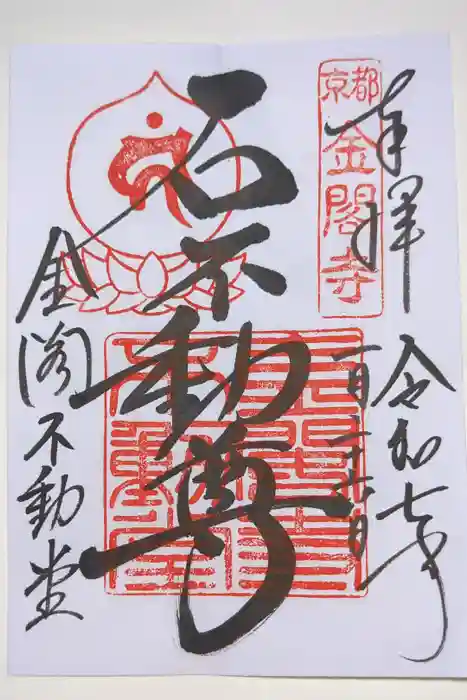 奉拝
京都
金閣寺
令和七年
一月二十六日
石不動尊
金閣不動堂